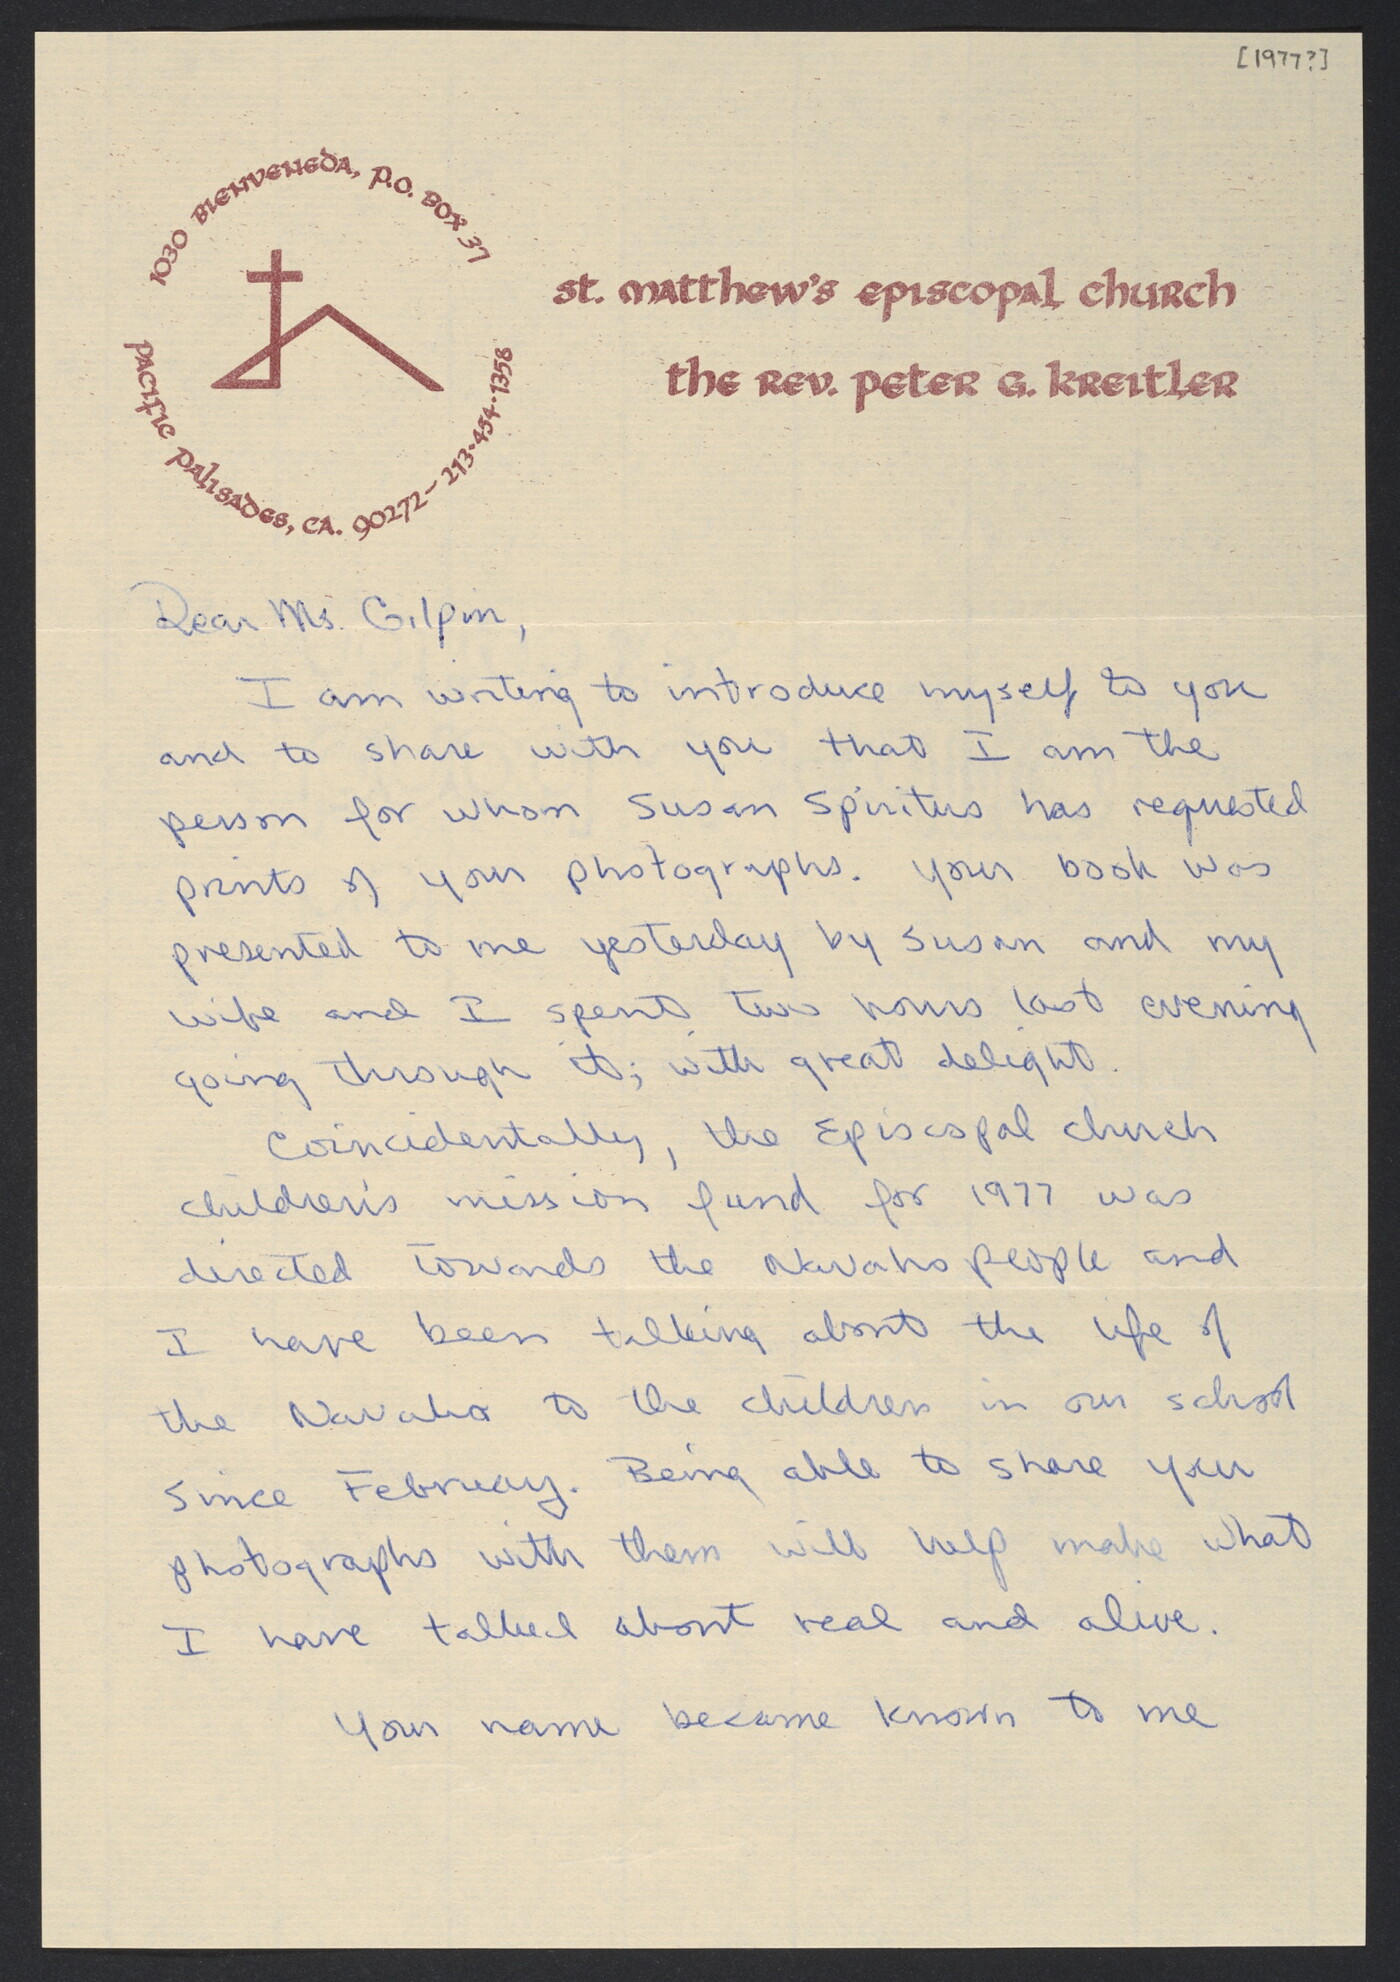 [1977?]
1030 Bienveneda, P.O. Box 37
Pacific Palisades, CA. 90272 – 213·454·1358
st. matthew's episcopal church
the rev. peter g. kreitler
Dear Ms. Gilpin,
I am writing to introduce myself to you
and to share with you that I am the
person for whom Susan Spiritus has requested
prints of your photographs. Your book was
presented to me yesterday by Susan and my
wife and I spent two hours last evening
going through it; with great delight.
Coincidentally, the Episcopal church
children's mission fund for 1977 was
directed towards the Navaho people and
I have been talking about the life of
the Navaho to the children in our school
since February. Being able to share your
photographs with them will help make what
I have talked about real and alive.
Your name became known to me